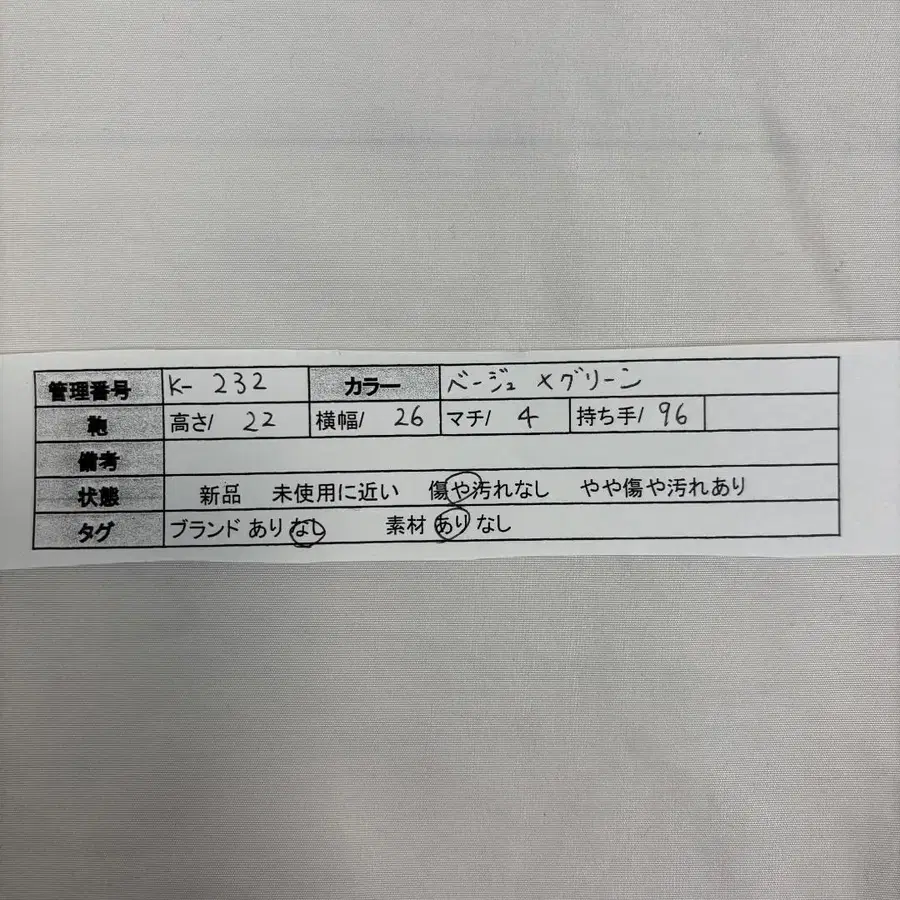 管理番号 K- 232 カラー ベージュ×グリーン
鞄 高さ/ 22 横幅/ 26 マチ/ 4 持ち手/ 96
備考
状態 新品 未使用に近い 傷や汚れなし やや傷や汚れあり
タグ ブランド あり なし 素材 あり なし